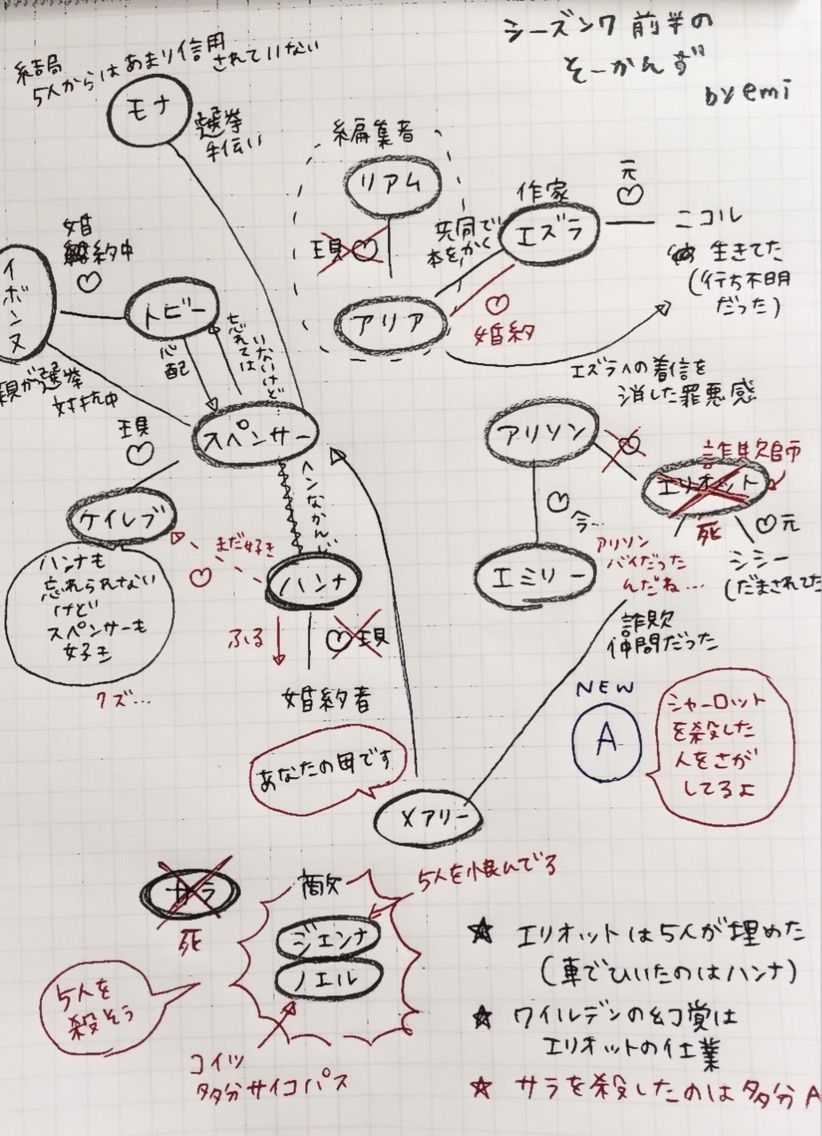 シーズン7 前半の
そーかんず
by emi
結局
5人からはあまり信用
されていない
モナ
選挙
手伝い
編集者
リアム
現♡
アリア
共同で
本をかく
作家
エズラ
♡
婚約
元
♡
ニコル
生きてた
(行ち不明
だった)
エズラへの着信を
消した罪悪感
婚
解約中
♡
イボンヌ
トビー
心配
忘れては
いないけど
親が選挙
対抗中
スペンサー
現
♡
ケイレブ
ハンナも
忘れられない
けど
スペンサーも
好き
クズ…
まだ好き
♡
ヘンなかんじ
ハンナ
ふる
♡現
婚約者
アリソン
♡
詐欺師
エリオット
死
♡元
シシー
(だまされてた
♡
今…
エミリー
アリソン
バイだった
んだね…
詐欺
仲間だった
NEW
A
シャーロット
を殺した
人をさが
してるよ
あなたの母です
メアリー
サラ
死
敵
ジェンナ
ノエル
5人を恨んでる
5人を
殺そう
コイツ
多分サイコパス
★ エリオットは5人が埋めた
(車でひいたのはハンナ)
★ ワイルデンの幻覚は
エリオットの仕業
★ サラを殺したのは多分A